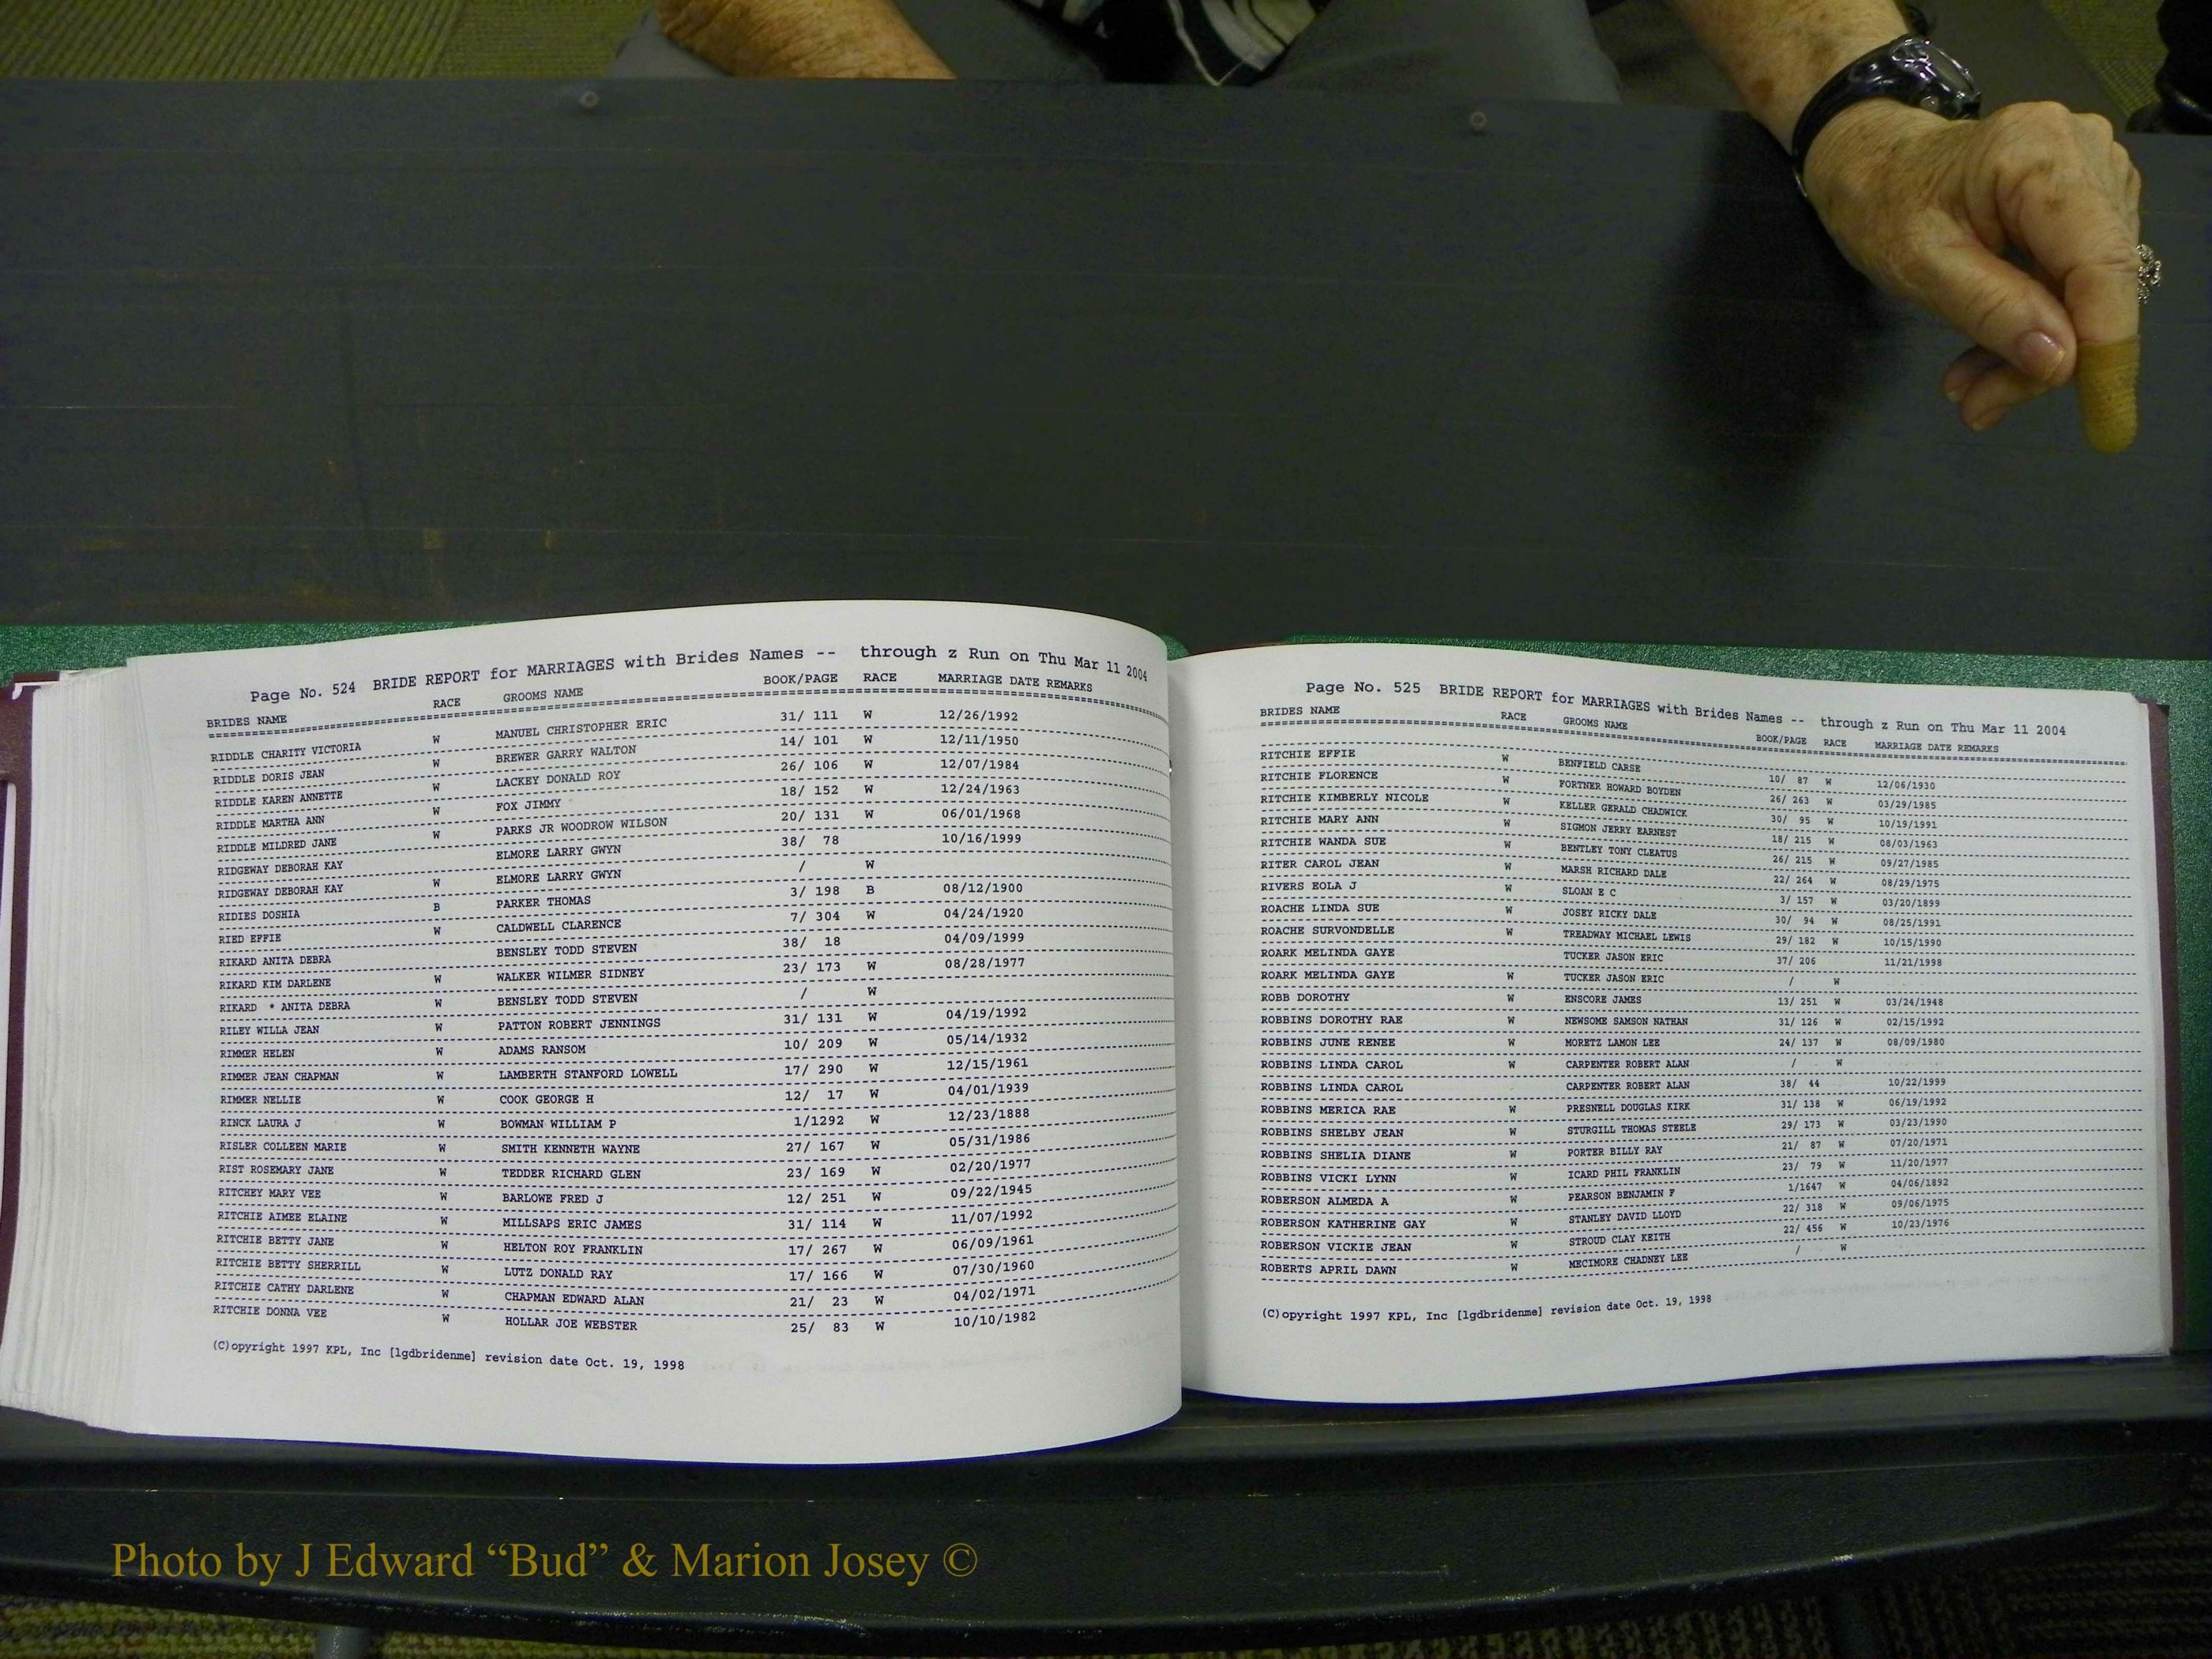 Page No. 524 BRIDE REPORT for MARRIAGES with Brides Names -- through z Run on Thu Mar 11 2004
BRIDES NAME RACE GROOMS NAME BOOK/PAGE RACE MARRIAGE DATE REMARKS
RIDDLE CHARITY VICTORIA W MANUEL CHRISTOPHER ERIC 31/ 111 W 12/26/1992
RIDDLE DORIS JEAN W BREWER GARRY WALTON 14/ 101 W 12/11/1950
RIDDLE KAREN ANNETTE W LACKEY DONALD ROY 26/ 106 W 12/07/1984
RIDDLE MARTHA ANN W FOX JIMMY 18/ 152 W 12/24/1963
RIDDLE MILDRED JANE W PARKS JR WOODROW WILSON 20/ 131 W 06/01/1968
RIDGEWAY DEBORAH KAY ELMORE LARRY GWYN 38/ 78 10/16/1999
RIDGEWAY DEBORAH KAY W ELMORE LARRY GWYN / W
RIDIES DOSHIA B PARKER THOMAS 3/ 198 B 08/12/1900
RIED EFFIE W CALDWELL CLARENCE 7/ 304 W 04/24/1920
RIKARD ANITA DEBRA BENSLEY TODD STEVEN 38/ 18 04/09/1999
RIKARD KIM DARLENE W WALKER WILMER SIDNEY 23/ 173 W 08/28/1977
RIKARD * ANITA DEBRA W BENSLEY TODD STEVEN / W
RILEY WILLA JEAN W PATTON ROBERT JENNINGS 31/ 131 W 04/19/1992
RIMMER HELEN W ADAMS RANSOM 10/ 209 W 05/14/1932
RIMMER JEAN CHAPMAN W LAMBERTH STANFORD LOWELL 17/ 290 W 12/15/1961
RIMMER NELLIE W COOK GEORGE H 12/ 17 W 04/01/1939
RINCK LAURA J W BOWMAN WILLIAM P 1/1292 W 12/23/1888
RISLER COLLEEN MARIE W SMITH KENNETH WAYNE 27/ 167 W 05/31/1986
RIST ROSEMARY JANE W TEDDER RICHARD GLEN 23/ 169 W 02/20/1977
RITCHEY MARY VEE W BARLOWE FRED J 12/ 251 W 09/22/1945
RITCHIE AIMEE ELAINE W MILLSAPS ERIC JAMES 31/ 114 W 11/07/1992
RITCHIE BETTY JANE W HELTON ROY FRANKLIN 17/ 267 W 06/09/1961
RITCHIE BETTY SHERRILL W LUTZ DONALD RAY 17/ 166 W 07/30/1960
RITCHIE CATHY DARLENE W CHAPMAN EDWARD ALAN 21/ 23 W 04/02/1971
RITCHIE DONNA VEE W HOLLAR JOE WEBSTER 25/ 83 W 10/10/1982
(C)opyright 1997 KPL, Inc [lgdbridenme] revision date Oct. 19, 1998
Page No. 525 BRIDE REPORT for MARRIAGES with Brides Names -- through z Run on Thu Mar 11 2004
BRIDES NAME RACE GROOMS NAME BOOK/PAGE RACE MARRIAGE DATE REMARKS
RITCHIE EFFIE W BENFIELD CARSE 10/ 87 W 12/06/1930
RITCHIE FLORENCE W FORTNER HOWARD BOYDEN 26/ 263 W 03/29/1985
RITCHIE KIMBERLY NICOLE W KELLER GERALD CHADWICK 30/ 95 W 10/19/1991
RITCHIE MARY ANN W SIGMON JERRY EARNEST 18/ 215 W 08/03/1963
RITCHIE WANDA SUE W BENTLEY TONY CLEATUS 26/ 215 W 09/27/1985
RITER CAROL JEAN W MARSH RICHARD DALE 22/ 264 W 08/29/1975
RIVERS EOLA J W SLOAN E C 3/ 157 W 03/20/1899
ROACHE LINDA SUE W JOSEY RICKY DALE 30/ 94 W 08/25/1991
ROACHE SURVONDELLE W TREADWAY MICHAEL LEWIS 29/ 182 W 10/15/1990
ROARK MELINDA GAYE TUCKER JASON ERIC 37/ 206 11/21/1998
ROARK MELINDA GAYE W TUCKER JASON ERIC / W
ROBB DOROTHY W ENSCORE JAMES 13/ 251 W 03/24/1948
ROBBINS DOROTHY RAE W NEWSOME SAMSON NATHAN 31/ 126 W 02/15/1992
ROBBINS JUNE RENEE W MORETZ LAMON LEE 24/ 137 W 08/09/1980
ROBBINS LINDA CAROL W CARPENTER ROBERT ALAN / W
ROBBINS LINDA CAROL CARPENTER ROBERT ALAN 38/ 44 10/22/1999
ROBBINS MERICA RAE W PRESNELL DOUGLAS KIRK 31/ 138 W 06/19/1992
ROBBINS SHELBY JEAN W STURGILL THOMAS STEELE 29/ 173 W 03/23/1990
ROBBINS SHELIA DIANE W PORTER BILLY RAY 21/ 87 W 07/20/1971
ROBBINS VICKI LYNN W ICARD PHIL FRANKLIN 23/ 79 W 11/20/1977
ROBERSON ALMEDA A W PEARSON BENJAMIN F 1/1647 W 04/06/1892
ROBERSON KATHERINE GAY W STANLEY DAVID LLOYD 22/ 318 W 09/06/1975
ROBERSON VICKIE JEAN W STROUD CLAY KEITH 22/ 456 W 10/23/1976
ROBERTS APRIL DAWN W MECIMORE CHADNEY LEE / W
(C)opyright 1997 KPL, Inc [lgdbridenme] revision date Oct. 19, 1998
Photo by J Edward “Bud” & Marion Josey ©